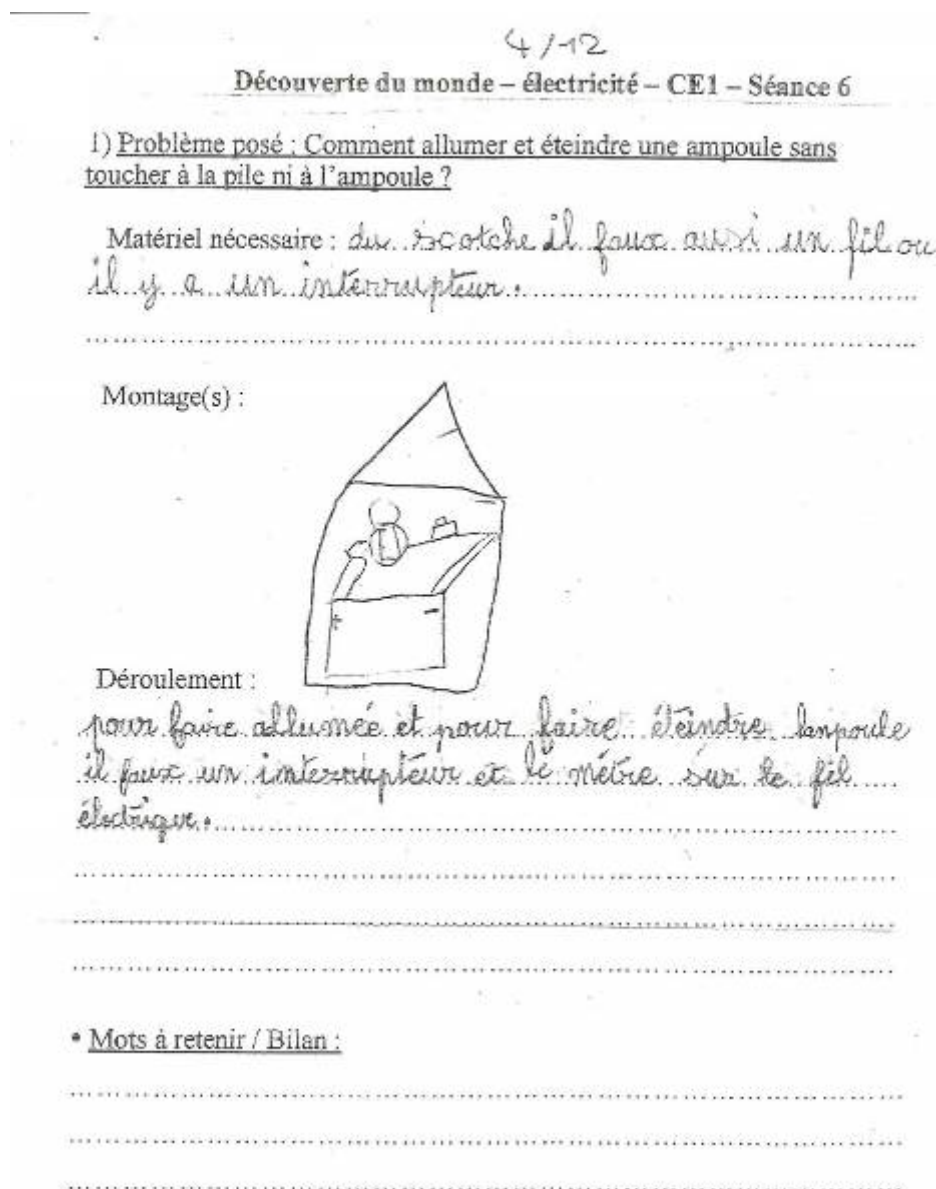 4/12
Découverte du monde – électricité – CE1 – Séance 6
1) Problème posé : Comment allumer et éteindre une ampoule sans
toucher à la pile ni à l'ampoule ?
Matériel nécessaire : du scotche il faux aussi un fil ou
il y a un interrupteur.
Montage(s) :
+ -
Déroulement :
pour faire allumée et pour faire éteindre lanpoule
il faux un interrupteur et le métre sur le fil
électrique.
• Mots à retenir / Bilan :